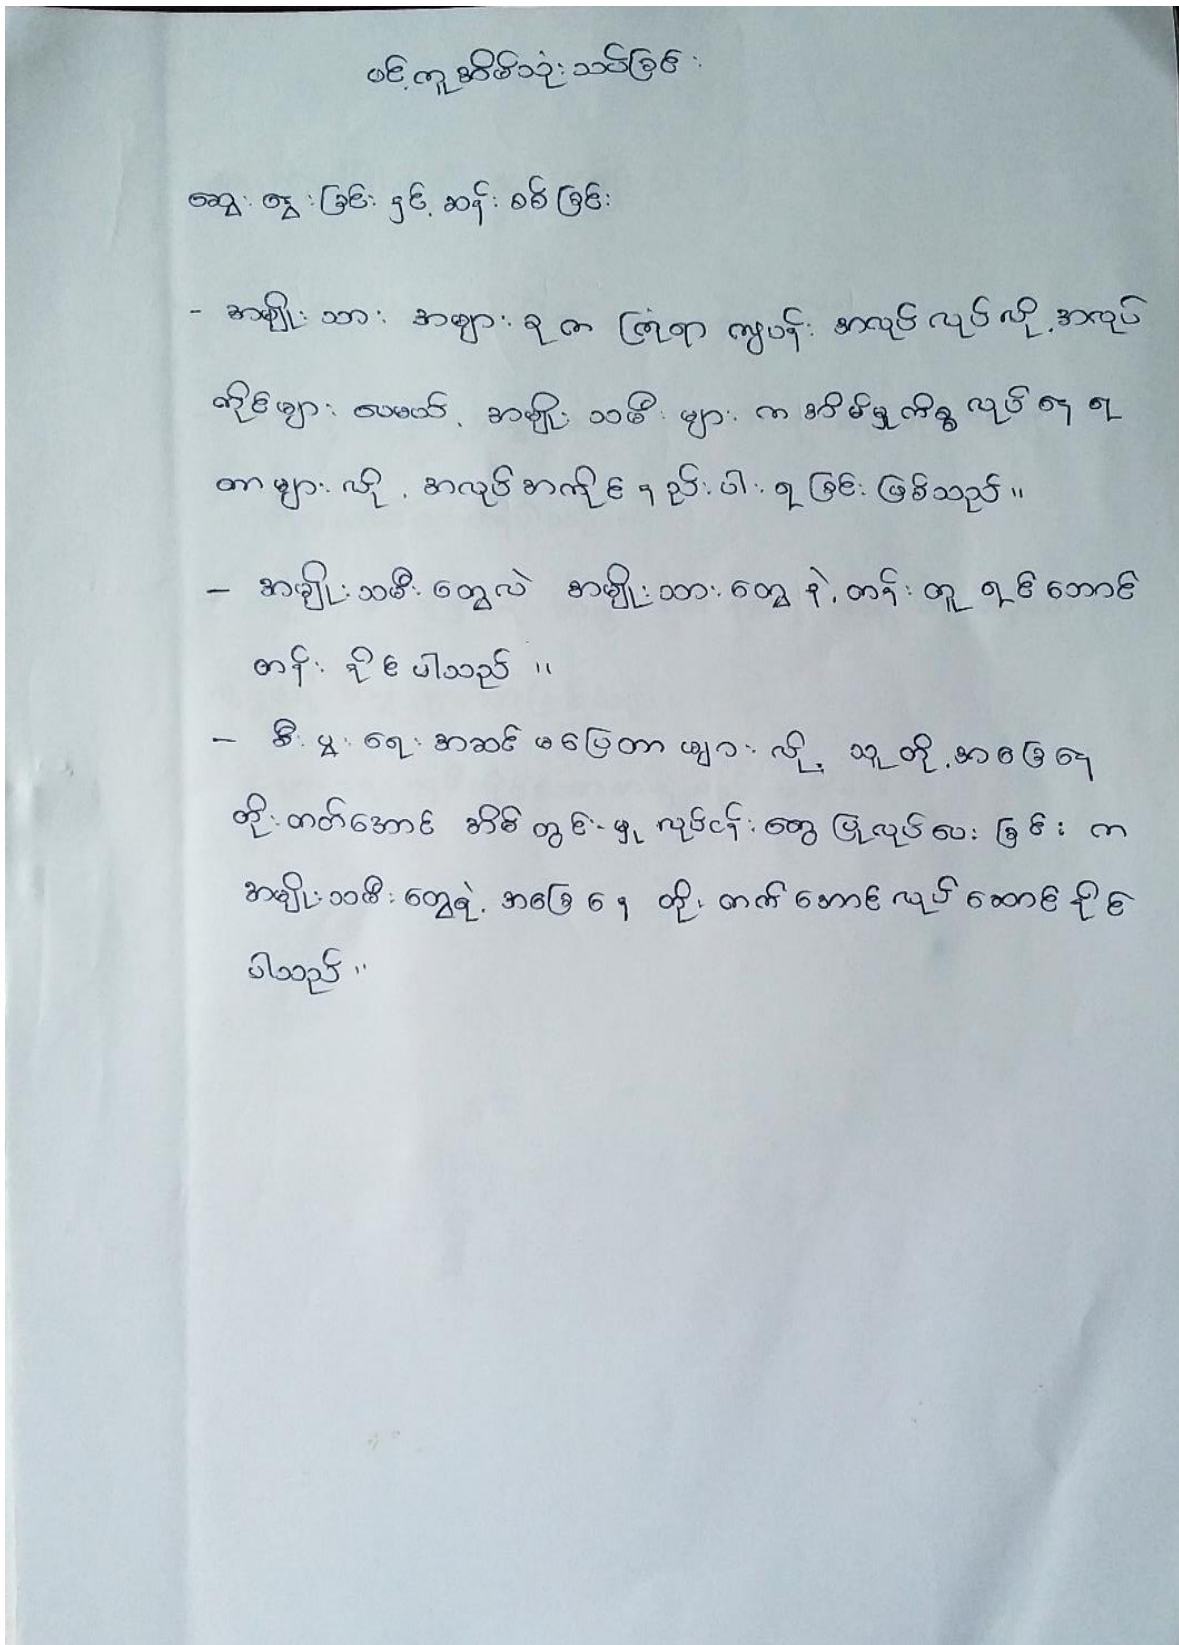 ပင့်ကူအိမ်သုံးသပ်ခြင်း
ဆွေးနွေးခြင်းနှင့်ဆန်းစစ်ခြင်း
- အမျိုးသားအများစုက ကြုံရာကျပန်းအလုပ်လုပ်လို့အလုပ်
ကိုင်များပေမယ့် အမျိုးသမီးများကအိမ်မှုကိစ္စလုပ်နေရ
တာများလို့ အလုပ်အကိုင်နည်းပါးရခြင်းဖြစ်သည်။
- အမျိုးသမီးတွေလဲ အမျိုးသားတွေနဲ့တန်းတူရင်ဘောင်
တန်းနိုင်ပါသည်။
- စီးပွားရေးအဆင်မပြေတာများလို့ သူတို့အခြေနေ
တိုးတတ်အောင် အိမ်တွင်းမှုလုပ်ငန်းတွေပြုလုပ်ပေးခြင်းက
အမျိုးသမီးတွေရဲ့အခြေနေ တိုးတက်အောင်လုပ်ဆောင်နိုင်
ပါသည်။